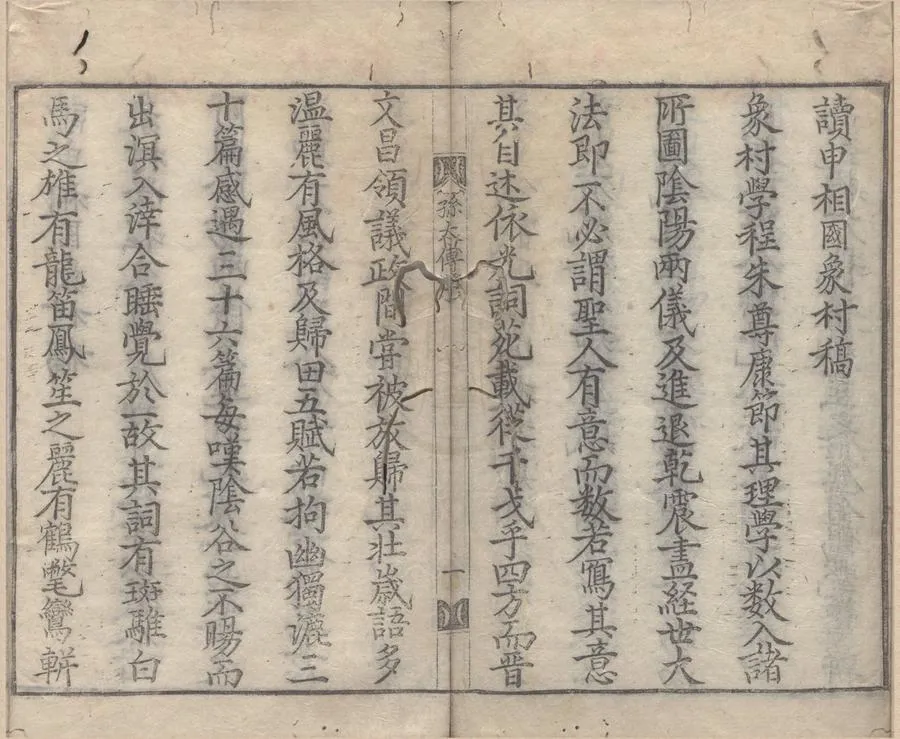 讀申相國象村稿
象村學程朱尊康節其理學以数入諸
所圖陰陽兩儀及進退乾震盡経世大
法即不必謂聖人有意而数若寫其意
其自述依光詞苑載從干戈乎四方而晋
孫太傅 一
文昌領議政間甞被放歸其壯歳語多
温麗有風格及歸田五賦若拘幽獨漉三
十篇感遇三十六篇每嘆陰谷之不暘而
出溟入涬合睡覺於一故其詞有斑騅白
馬之雄有龍笛鳳笙之麗有鶴氅鸞輧